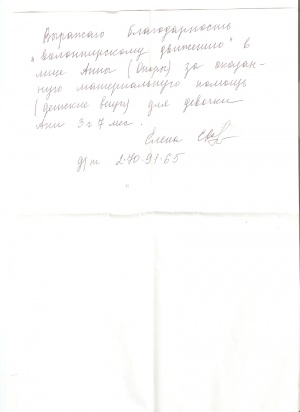 Выражаю благодарность
"Волонтирскому движению" в
лице Анны (Опоры) за оказан-
ную материальную помощь
(детские вещи) для девочки
Ани 3 г 7 мес.
Елена
д/т 2-70-91-65